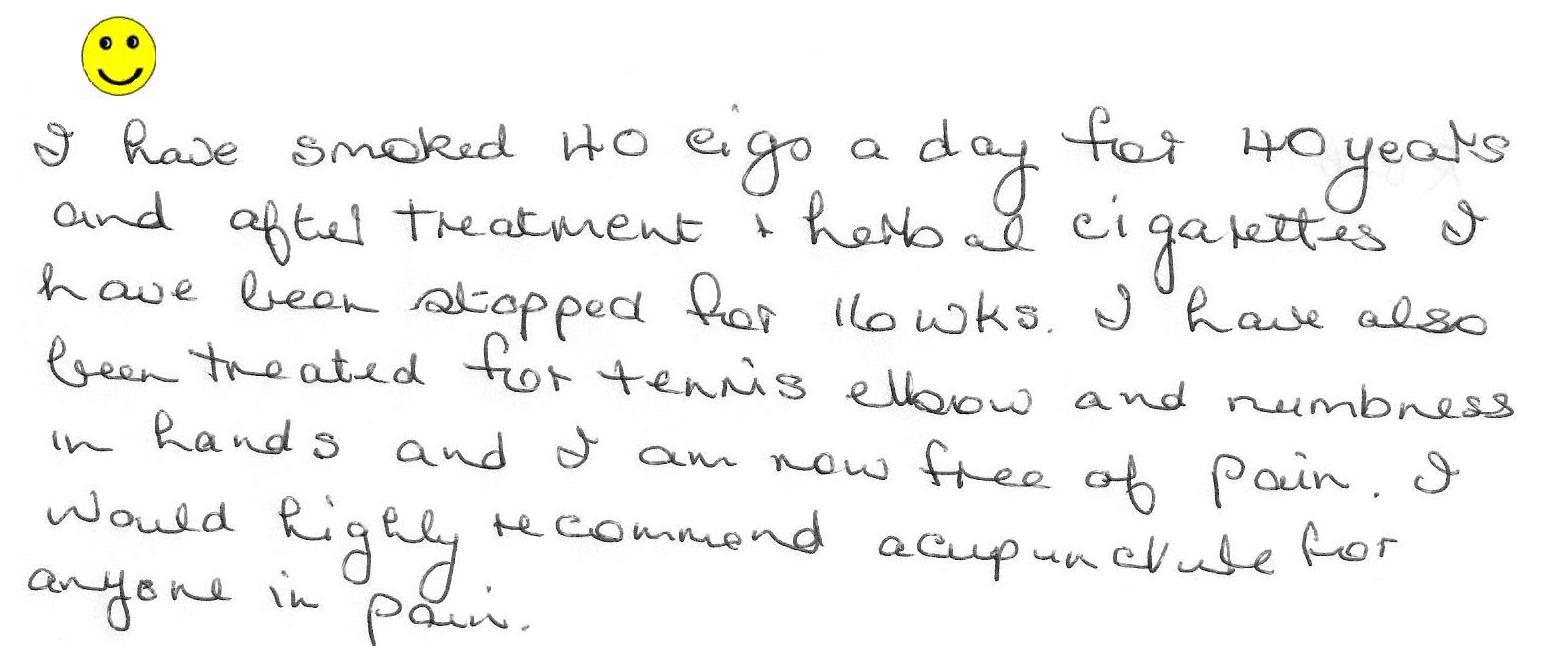 I have smoked 40 cigs a day for 40 years
and after treatment + herbal cigarettes I
have been stopped for 16 wks. I have also
been treated for tennis elbow and numbness
in hands and I am now free of pain. I
would highly recommend acupuncture for
anyone in pain.